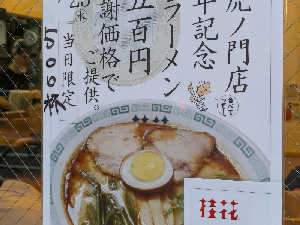 虎ノ門店
年記念
ラーメン
五百円
謝価格で
ご提供。
当日限定
500杯
桂花